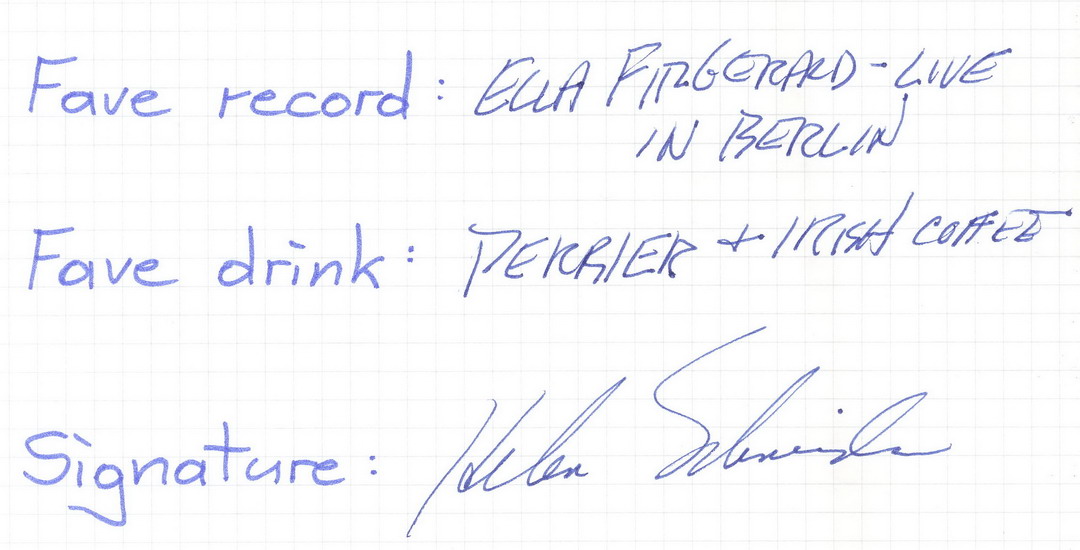 Fave record: ELLA FITZGERALD - LIVE
IN BERLIN
Fave drink: PERRIER + IRISH COFFEE
Signature: Helen Schneider